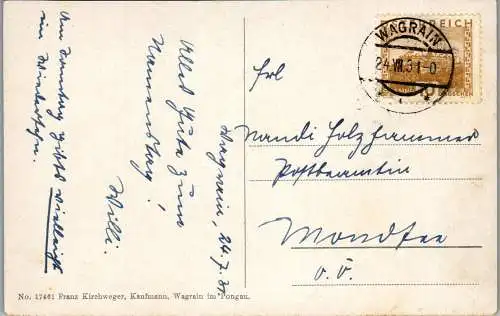 Wagrain, 24.7.31
Alles Gute zum
Namenstag!
Willi.
Am Sonntag gibts vielleicht
ein Wiedersehn.
No. 17461 Franz Kirchweger, Kaufmann, Wagrain im Pongau.
REICH
WAGRAIN
24.VII.31-0
Frl
Nandi Holzhammer
Postbeamtin
Mondsee
O.Ö.